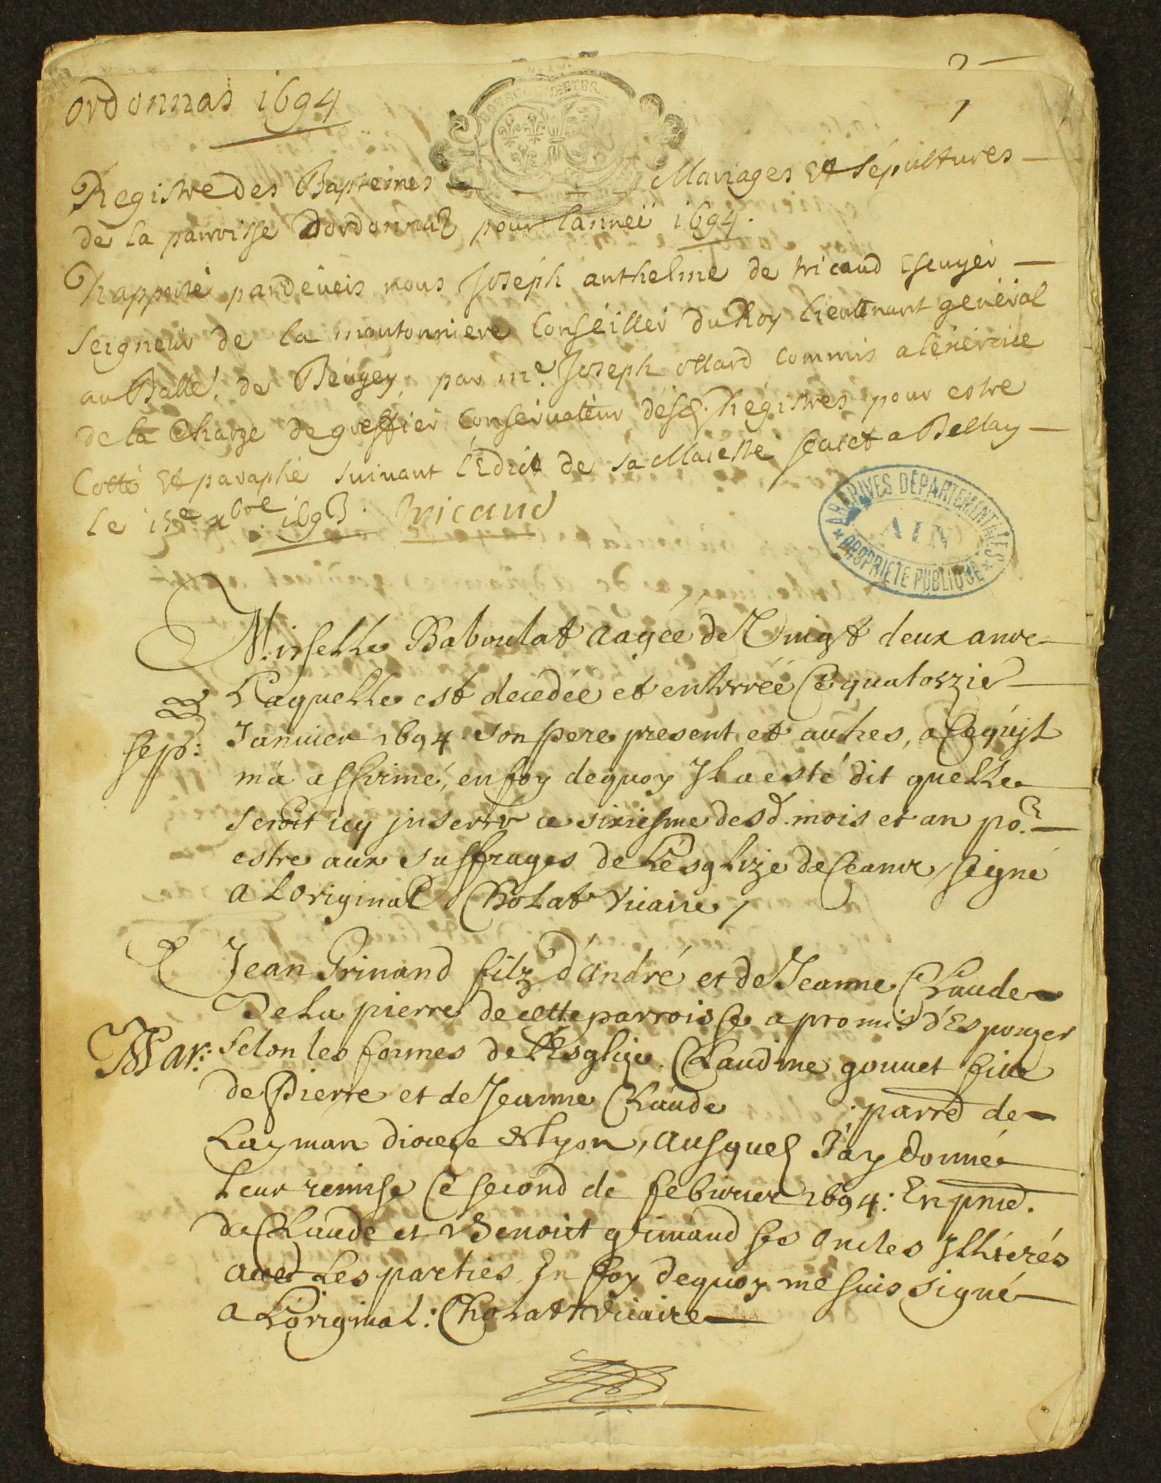 ordonnas 1694
Registre des Baptemes Mariages Et sépultures
de la parroisse Dordonnas pour lanneé 1694.
Rapporté pardeuers nous Joseph anthelme de tricaud Escuyer
Seigneur de la montonniere Conseiller du Roy lieutenant general
au Balle. de Beugey par me. Joseph ollard commis a lexercice
de la charge de greffier conservateur desd. Registres pour estre
Cotté Et paraphé suiuant l'Edict de sa Maiesté faict a Bellay
le 15e xbre 1693. Tricaud
ARCHIVES DÉPARTEMENTALES
AIN
PROPRIÉTÉ PUBLIQUE
Baboulat aagée de Vingt deux ans
Laquelle est decedée et enterrée Ce quatorzie
Sep:
Januier 1694 son pere present et autres, a Ce quil
m'a affirmé, en foy dequoy Il a esté dit quelle
seroit icy inserer ce sixiesme desd. mois et an po.
estre aux suffrages de L'esglize de Ceans, signé
a Loriginal Cholat Vicaire /
Jean Grinand filz d'andré et de Jeanne Claude
De la pierre de cette parroisse a promis d'Espouzer
Mar:
Selon les formes de L'Esglize Claudine gouuet fille
de Pierre et de Jeanne Claude parre de
Laÿman diocese de lyon, ausquel J'ay donnée
leur remise Ce second de febvrier 1694: En pnce.
de Claude et Benoit grimand ses oncles Illiterés
avec Les parties En foy dequoy me suis signé
a L'original: Cholat Vicaire